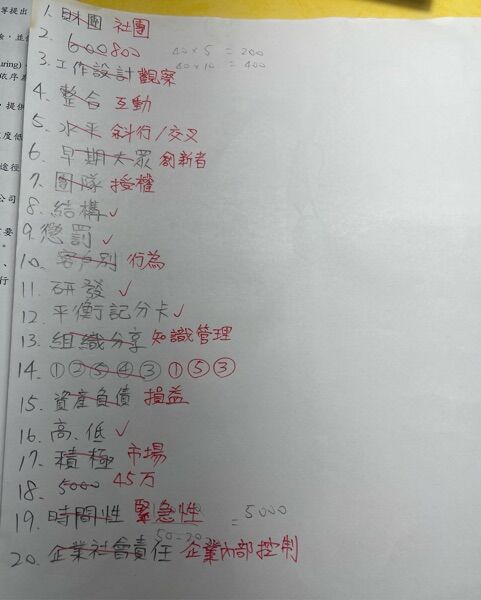 等提出
1. 財團 社團
2. 600 800 40×5 = 200
40×10 = 400
uring)
3. 工作設計 觀察
依序
4. 整合 互動
提供
5. 水平 斜行/交叉
度低
6. 早期大眾 創新者
途徑
7. 團隊 授權
公司
8. 結構 ✓
要
9. 懲罰 ✓
10. 客戶別 行為
行
11. 研發 ✓
12. 平衡記分卡 ✓
13. 組織分享 知識管理
14. ①②⑤④③ ①⑤③
15. 資產負債 損益
16. 高、低 ✓
17. 積極 市場
18. 5000 45万
19. 時間性 緊急性 = 5000
20. 企業社會責任 企業內部控制